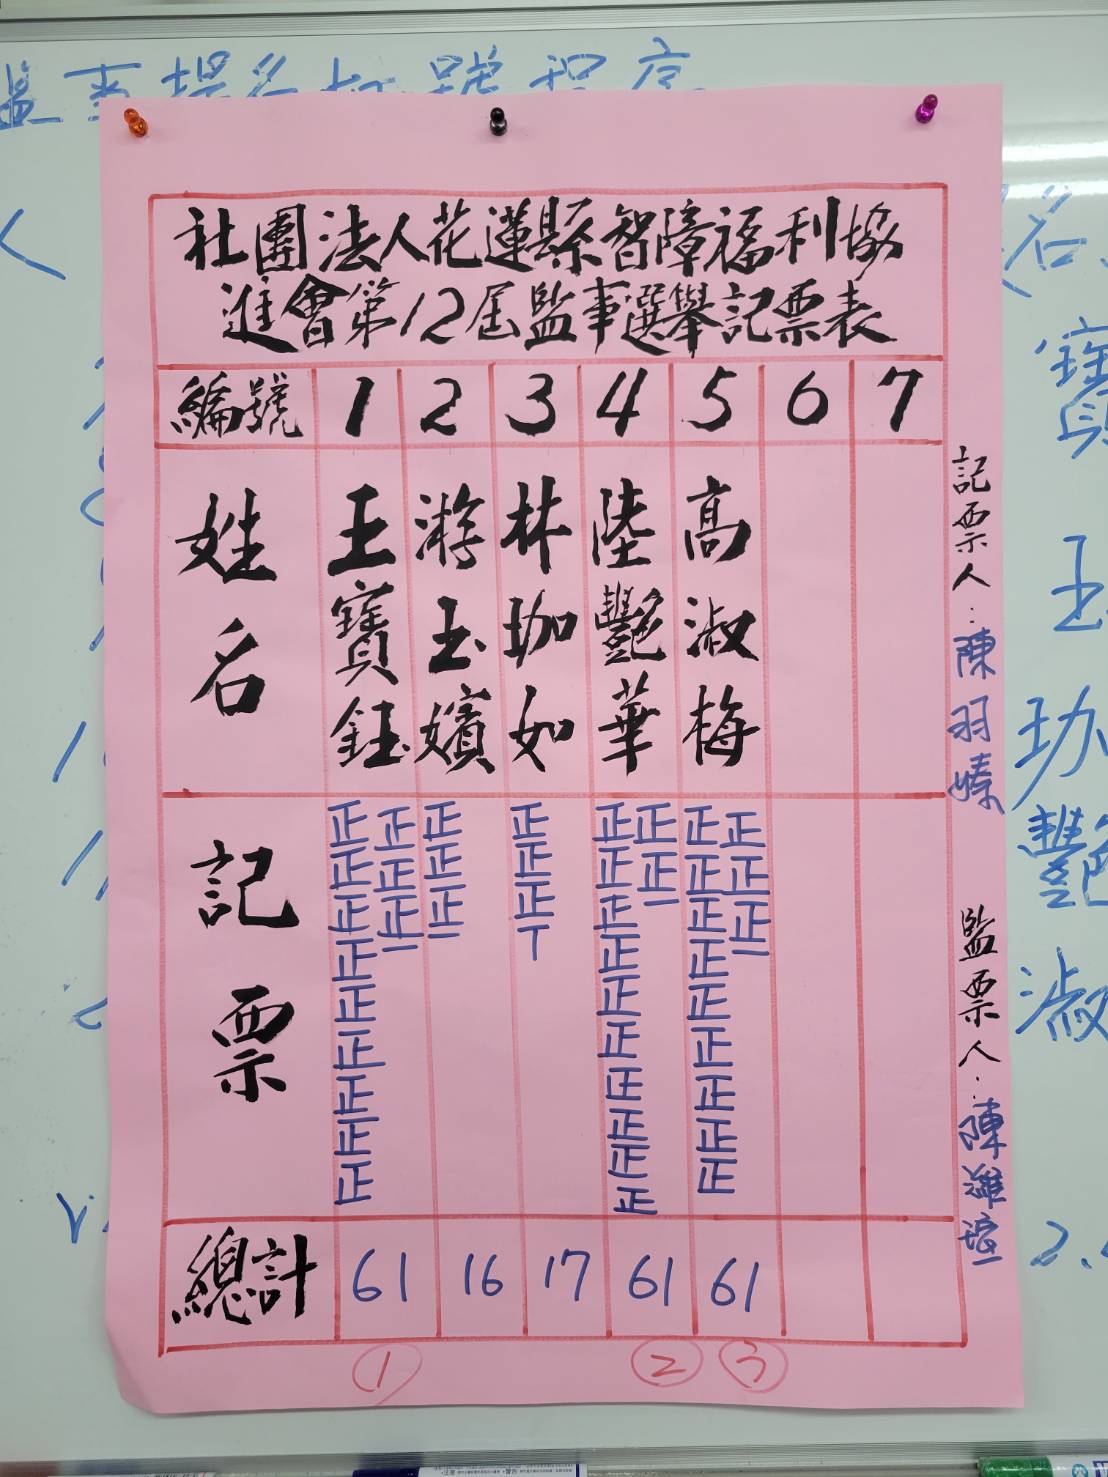 監事提名
社團法人花蓮縣智障福利協
進會第12屆監事選舉記票表
編號 1 2 3 4 5 6 7
姓名 王寶鈺 游玉嬪 林珈如 陸艷華 高淑梅
記票
正正正正正正正正正 正正正
正正正
正正正
正正正正正正正正正正 正正
正正正正正正正正正 正正正
總計 61 16 17 61 61
① ② ③
記票人：陳羽嫀
監票人：陳
名
寶
玉
珈
艷
淑